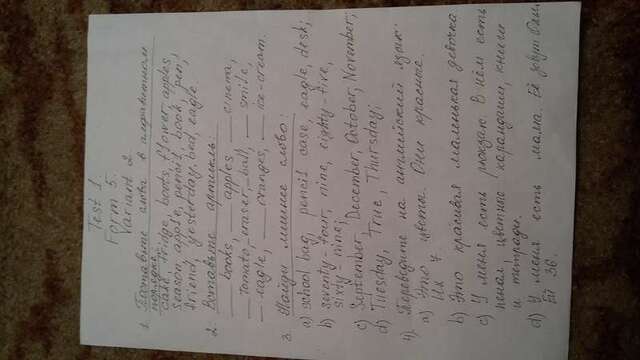 Test 1.
Form 5.
Variant 2.
1. Поставьте слова в алфавитном
порядке:
cake, fridge, boots, flower, apples
season, apple, pencil, book, pen,
friend, yesterday, bed, eagle
2. Вставьте артикль:
___ books, ___ apples ___ cinema,
___ tomato_ eraser, _ ball, ___ smile,
__ eagle, ___ oranges, __ ice-cream.
3. Найди лишнее слово:
a) school bag, pencil case, eagle, desk;
b) seventy-four, nine, eighty-five,
sixty-nine;
c) September, December, October, November;
d) Tuesday, True, Thursday;
4. Переведите на английский язык.
a) Это цветы. Они красные.
Их 7.
b) Это красивая маленькая девочка
c) У меня есть рюкзак. В нём есть
пенал, цветные карандаши, книги
и тетради.
d) У меня есть мама. Её зовут
Ей 36.